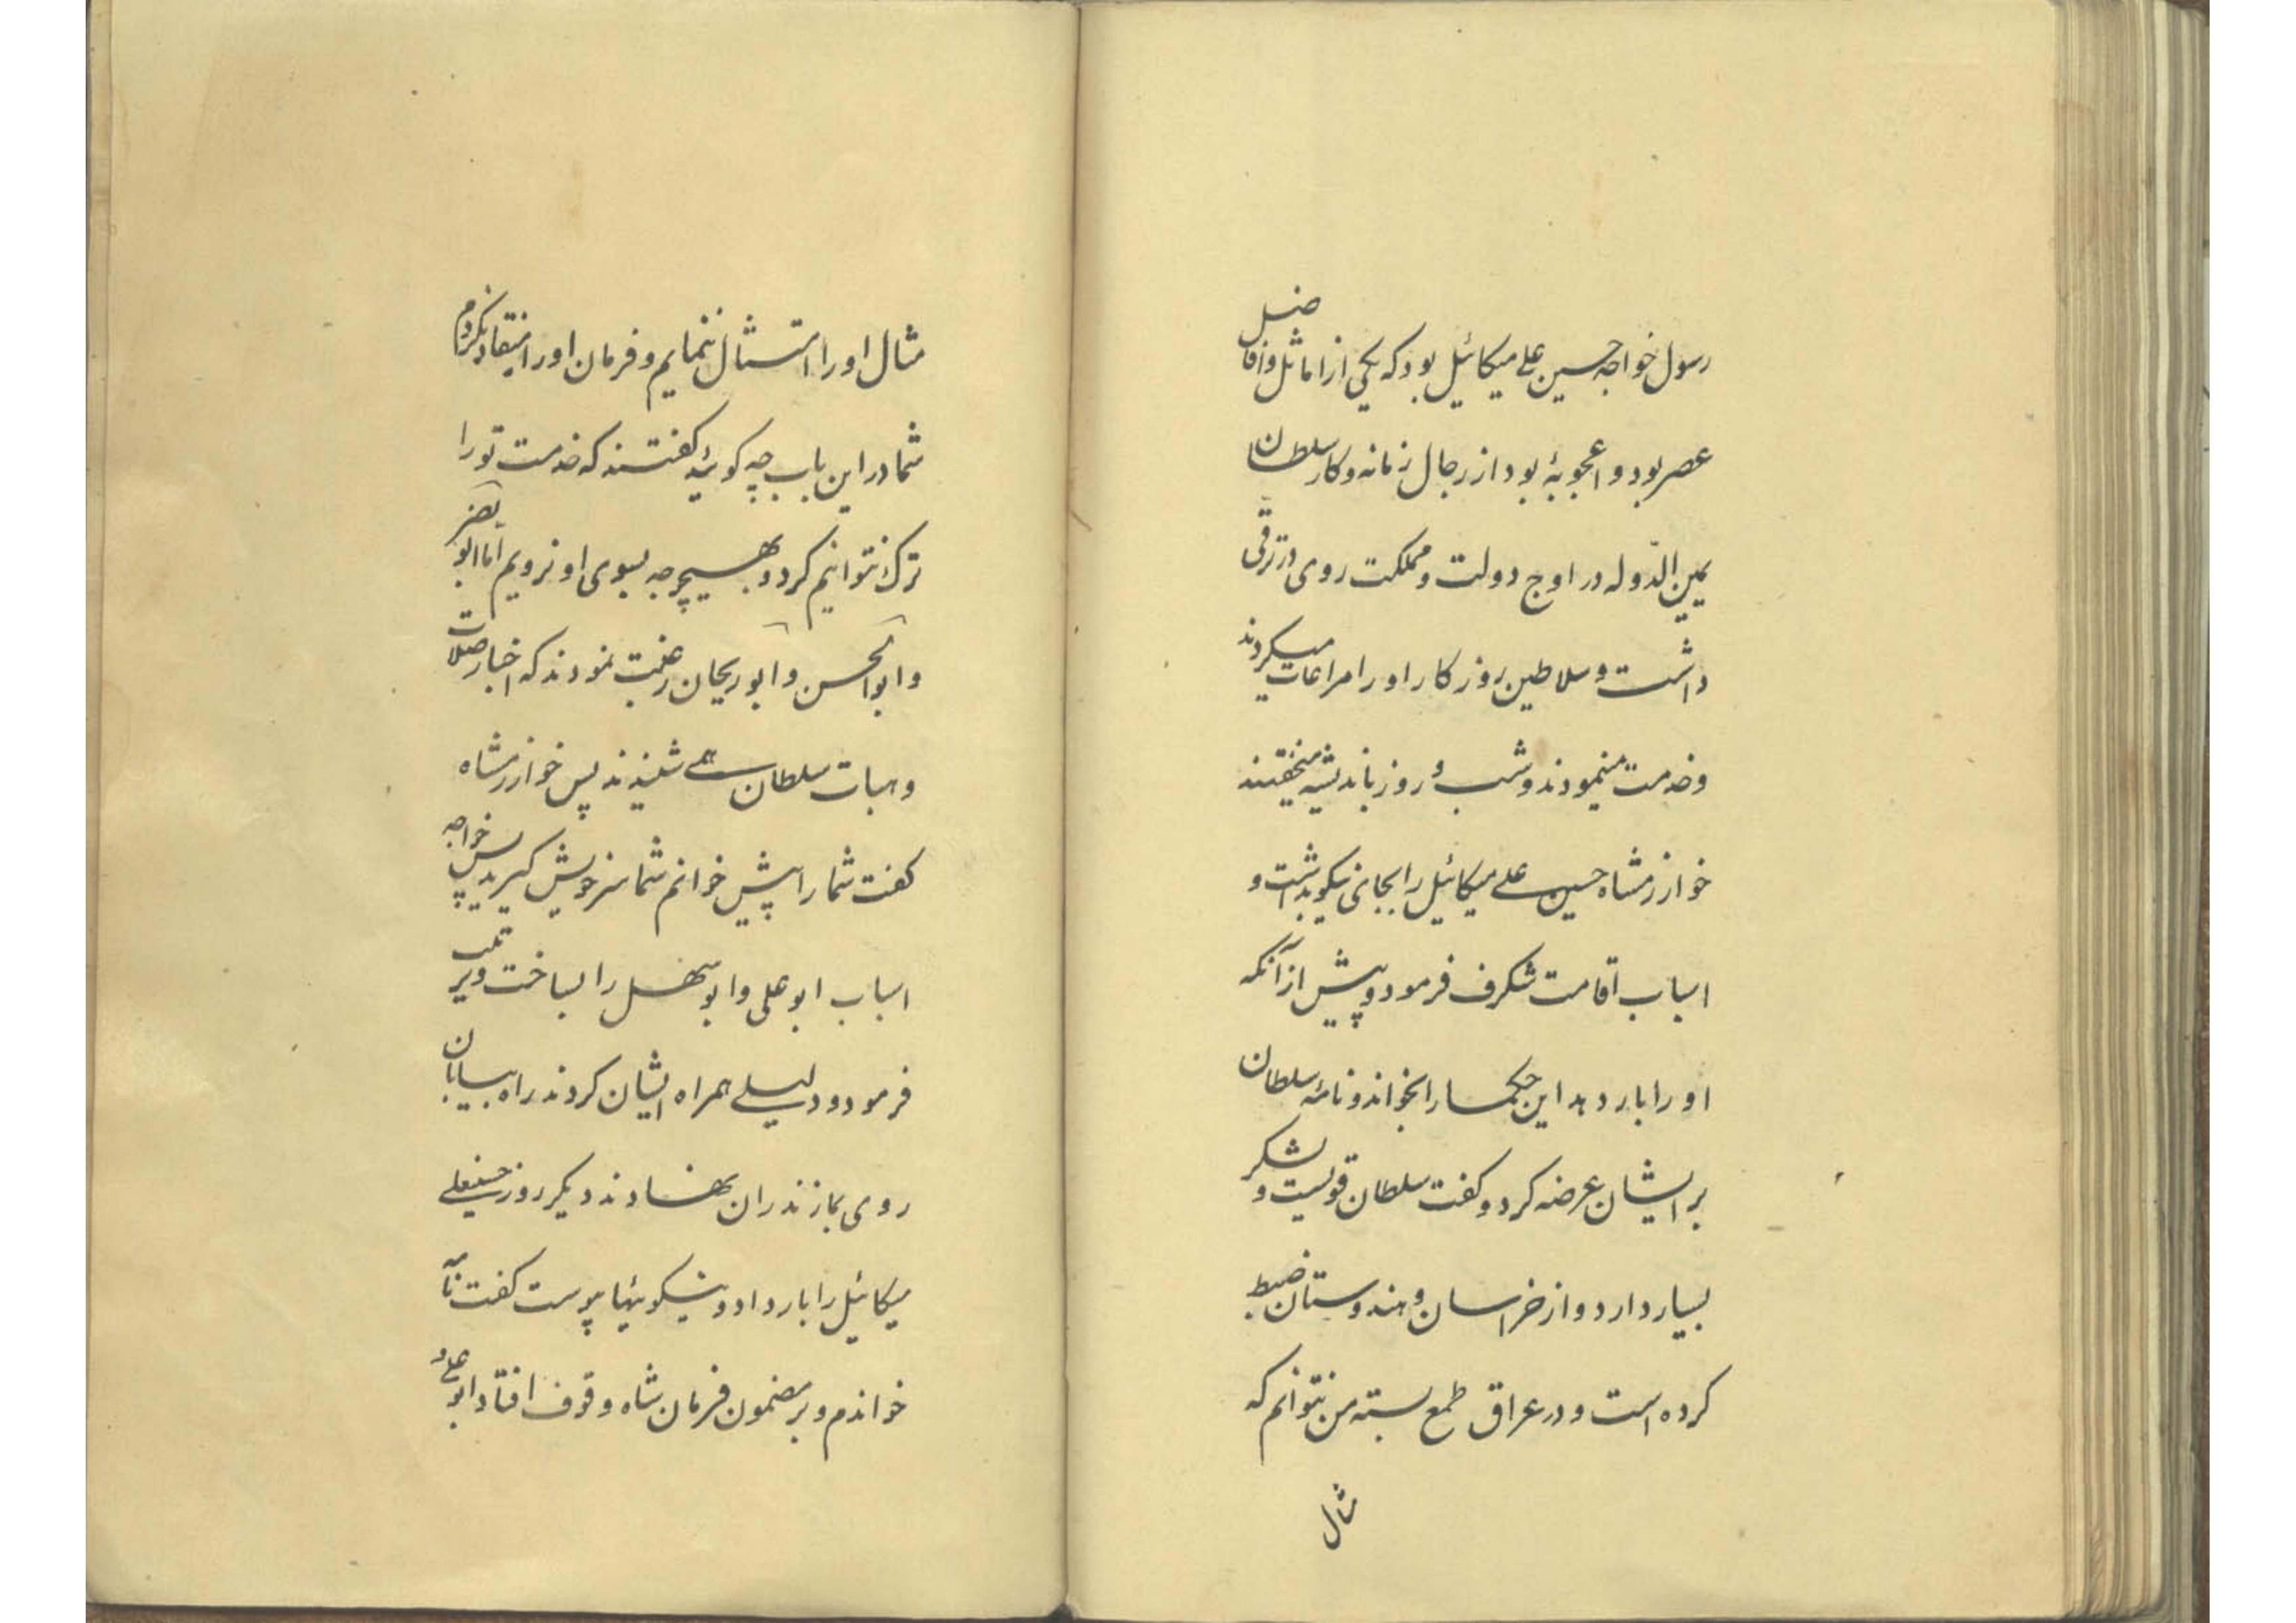 رسول خواجه حسین علی میکائیل بود که یکی از اماثل و افاضل
عصر بود و اعجوبهٔ بود از رجال زمانه و کار سلطان
یمین الدّوله در اوج دولت و مملکت روی در ترقی
داشت و سلاطین روزکار او را مراعات میکردند
و خدمت مینمودند و شب و روز باندیشه میخفتند
خوارزمشاه حسین علی میکائیل را بجای نیکو بداشت و
اسباب اقامت شکرف فرمود و پیش از آنکه
او را بار دهد این حکما را بخواند و نامهٔ سلطان
بر ایشان عرضه کرد و کفت سلطان قویست و لشکر
بسیار دارد و از خراسان و هندوستان ضبط
کرده است و در عراق طمع بسته من نتوانم که
مثال
مثال او را امتثال ننمایم و فرمان او را انقیاد نکردم
شما در این باب چه کوئید کفتند که خدمت تو را
ترک نتوانیم کرد و بهیچوجه بسوی او نرویم اما ابو نصر
و ابوالحسن و ابوریحان رغبت نمودند که اخبار صلات
و هبات سلطان همی شنیدند پس خوارزمشاه
کفت شما را پیش خوانم شما سر خویش کیرید پس خواجه
اسباب ابو علی و ابو سهل را بساخت و برتیب
فرمود و دلیلی همراه ایشان کردند راه بیابان
روی بمازندران نهادند دیکر روز حسینعلی
میکائیل را بار داد و نیکوئیها پیوست کفت نامه
خواندم و بر مضمون فرمان شاه وقوف افتاد ابو علی و